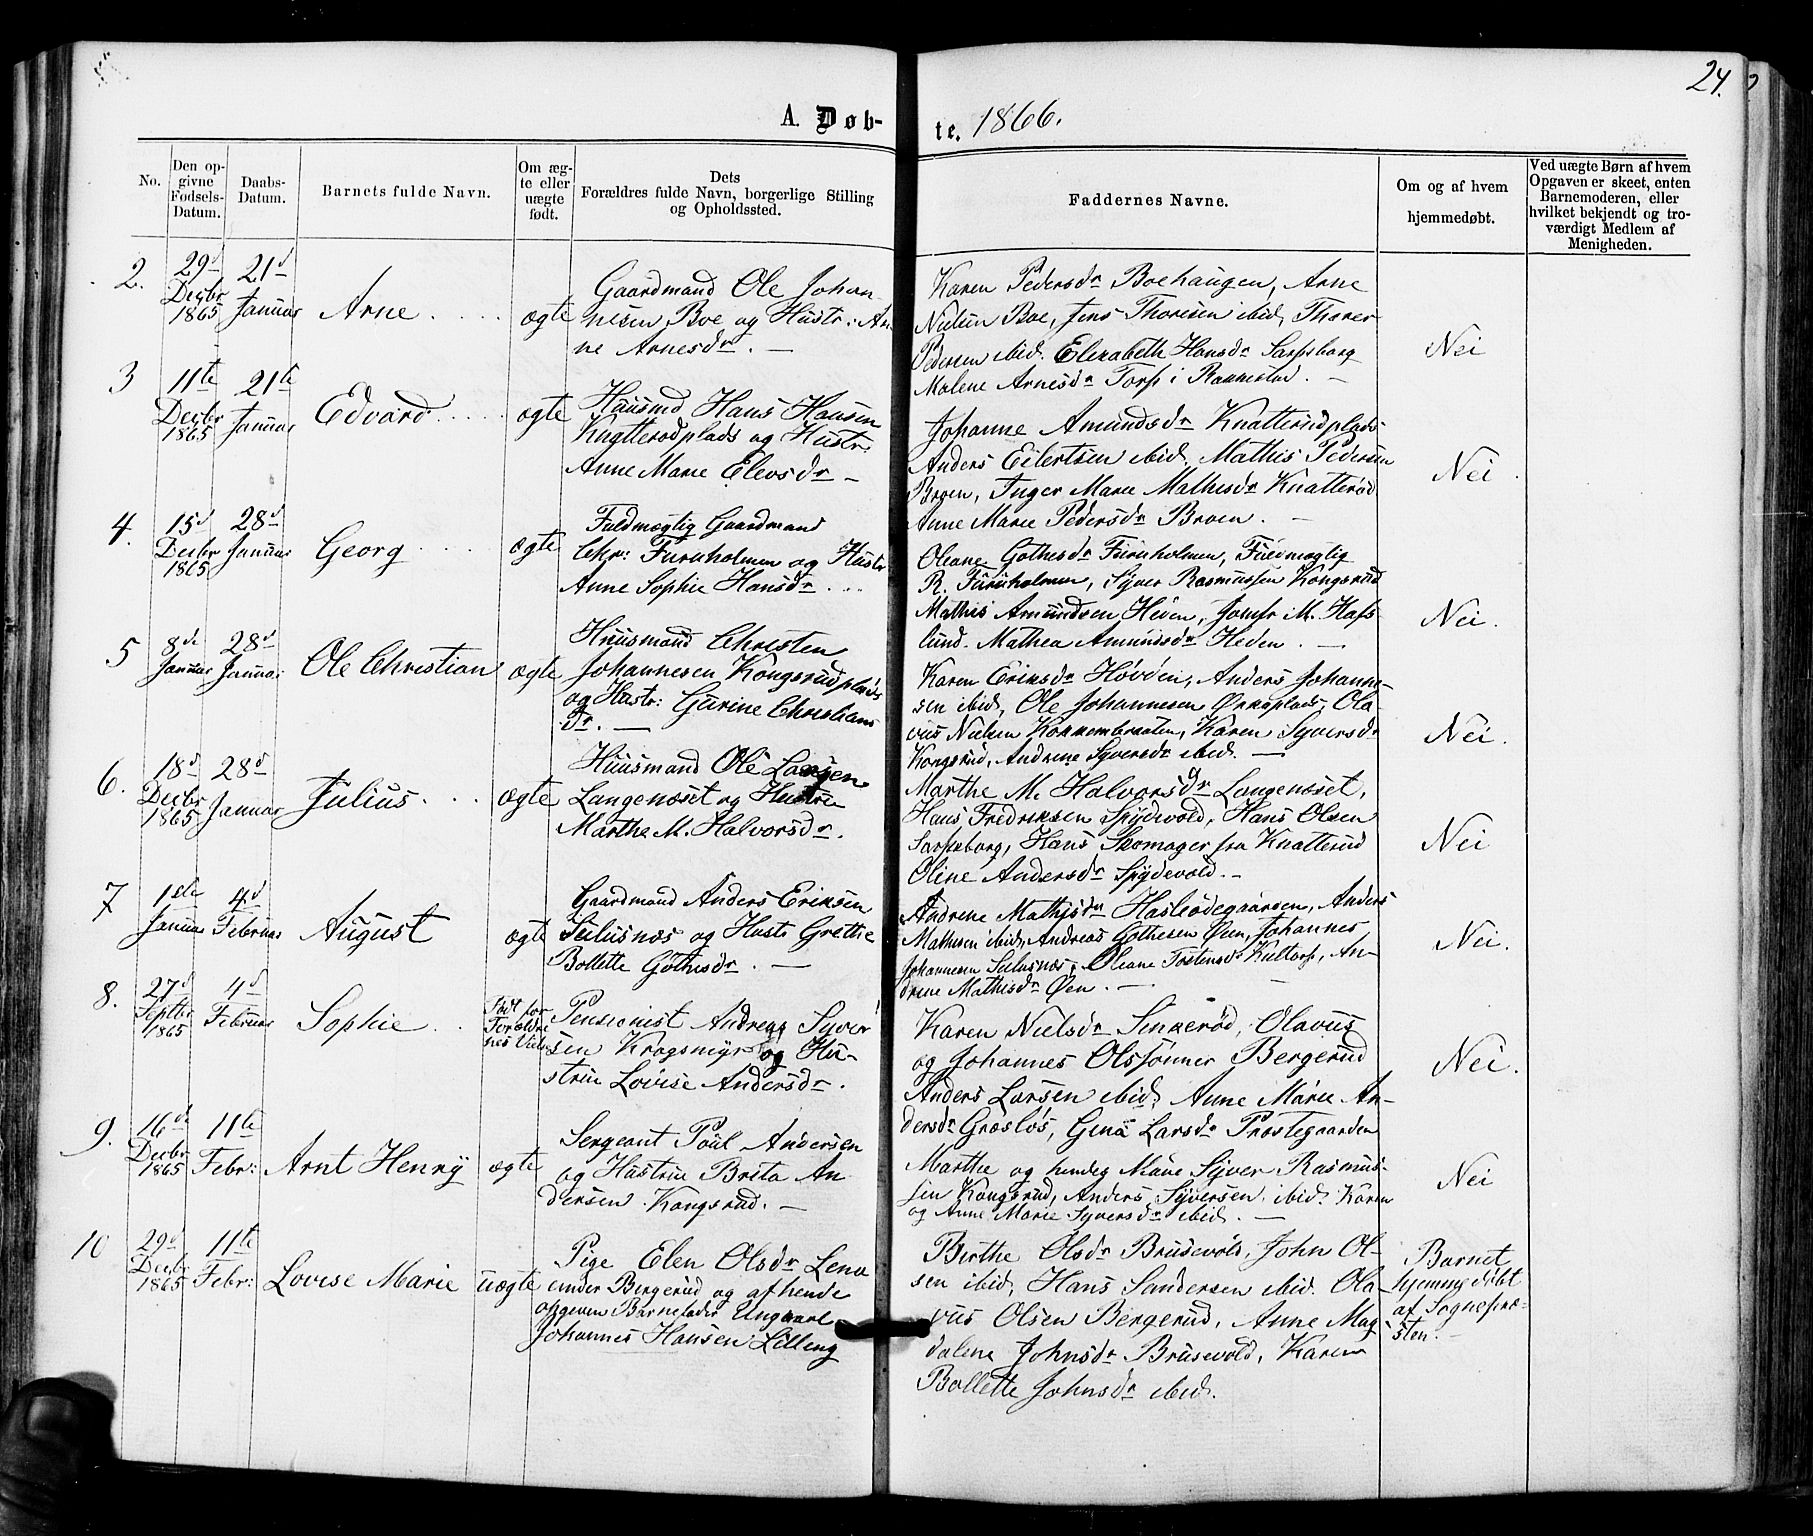 24.
A. Døb-
te. 1866.
No.
Den op-
givne
Fødsels-
Datum.
Daabs-
Datum.
Barnets fulde Navn.
Om æg-
te eller
uægte
født.
Dets
Forældres fulde Navn, borgerlige Stilling
og Opholdssted.
Faddernes Navne.
Om og af hvem
hjemmedøbt.
Ved uægte Børn af hvem
Opgaven er skeet, enten
Barnemoderen, eller
hvilket bekjendt og tro-
værdigt Medlem af
Menigheden.
2.
29d
Decbr
1865
21d
Januar
Arne
ægte
Gaardmand Ole Johan-
nesen Boe og Hustr: An-
ne Arnesdr. —
Karen Pedersdr Boehaugen, Arne
Nielsen Boe, Jens Thoresen ibid, Thorer
Pedersen ibid. Elizabeth Hansdr Sarpsborg
Malene Arnesdr Torp i Rakkestad. —
Nei
3
11te
Decbr
1865
21te
Januar
Edvard
ægte
Huusmd Hans Hansen
Knatterødplads og Hustr.
Anne Marie Elevsdr —
Johanne Amundsdr Knatterødplads.
Anders Eilertsen ibid. Mathis Pedersen
Broen, Inger Marie Mathisdr Knatterød
Anne Marie Pedersdr Broen. —
Nei.
4.
15d
Decbr
1865
28d
Januar
Georg
ægte
Fuldmægtig Gaardmand
Chr: Furuholmen og Hustr
Anne Sophie Hansdr.
Oleane Gothesdr Furuholmen, Fuldmægtig
R. Furuholmen, Syver Rasmussen Kongsrud
Mathis Amundsen Heden, Jomfr M. Hafs-
lund. Mathea Amundsdr Heden. —
Nei.
5
8de
Januar
28d
Januar
Ole Christian
ægte
Huusmand Christen
Johannesen Kongsrudplads
og Hustr: Gurine Christians-
dr. —
Karen Eriksdr Høvden, Anders Johanne-
sen ibid, Ole Johannesen Ørkeplads, Ola-
vus Nielsen Kokkembraaten, Karen Syversdr
Kongsrud, Andrine Syversdr ibid. —
Nei.
6.
18d
Decbr
1865
28d
Januar
Julius
ægte
Huusmand Ole Larsen
Langenæset og Hustru
Marthe M. Halvorsdr.
Marthe M. Halvorsdr Langenæset,
Hans Fredriksen Spydevold, Hans Olsen
Sarpsborg, Hans Skomager fra Knatterud
Oline Andersdr Spydevold. —
Nei
7
1ste
Januar
4d
Februar
August
ægte
Gaardmand Anders Eriksen
Sulusnæs og Hustr Grethe
Bollette Gothisdr. —
Andrine Mathisdr Hasleødegaarden, Anders
Mathisen ibid, Andreas Gothesen Øen, Johannes
Johannesen Sulusnæs, Oleane Tostensdr Kultorp, An-
drine Mathisdr Øen. —
Nei.
8.
27d
Septbr
1865
4d
Februar
Sophie
født før
Forældre
nes Vielse
Pensionist Andreas Syver-
sen Krogsmyr og Hu-
strue Lovise Andersdr.
Karen Nielsdr Sinkerød, Olavus
og Johannes Olssønner Bergerud
Anders Larsen ibid, Anne Marie An-
dersdr Græsløs, Gina Larsdr Prestegaarden
Nei.
9.
16d
Decbr
1865
11te
Febr:
Arnt Henry
ægte
Sergeant Poul Andersen
og Hustrue Brita An-
dersen Kongsrud. —
Marthe og hendes Mand Syver Rasmus-
sen Kongsrud, Anders Syversen ibid. Karen
og Anne Marie Syversdr ibid. —
Nei
10
29d
Decbr
1865
11te
Febr:
Lovise Marie
uægte
Pige Elen Olsdr Lena
under Bergerud og af hende
opgiven Barnefader Ungkarl
Johannes Hansen Lilleng
Birthe Olsdr Brusevold, John Ol-
sen ibid, Hans Sandersen ibid. Ola-
vus Olsen Bergerud, Anne Mag-
dalena Johnsdr Brusevold, Karen
Bollette Johnsdr ibid.
Barnet
hjemmedøbt
af Sognepræ-
sten. —